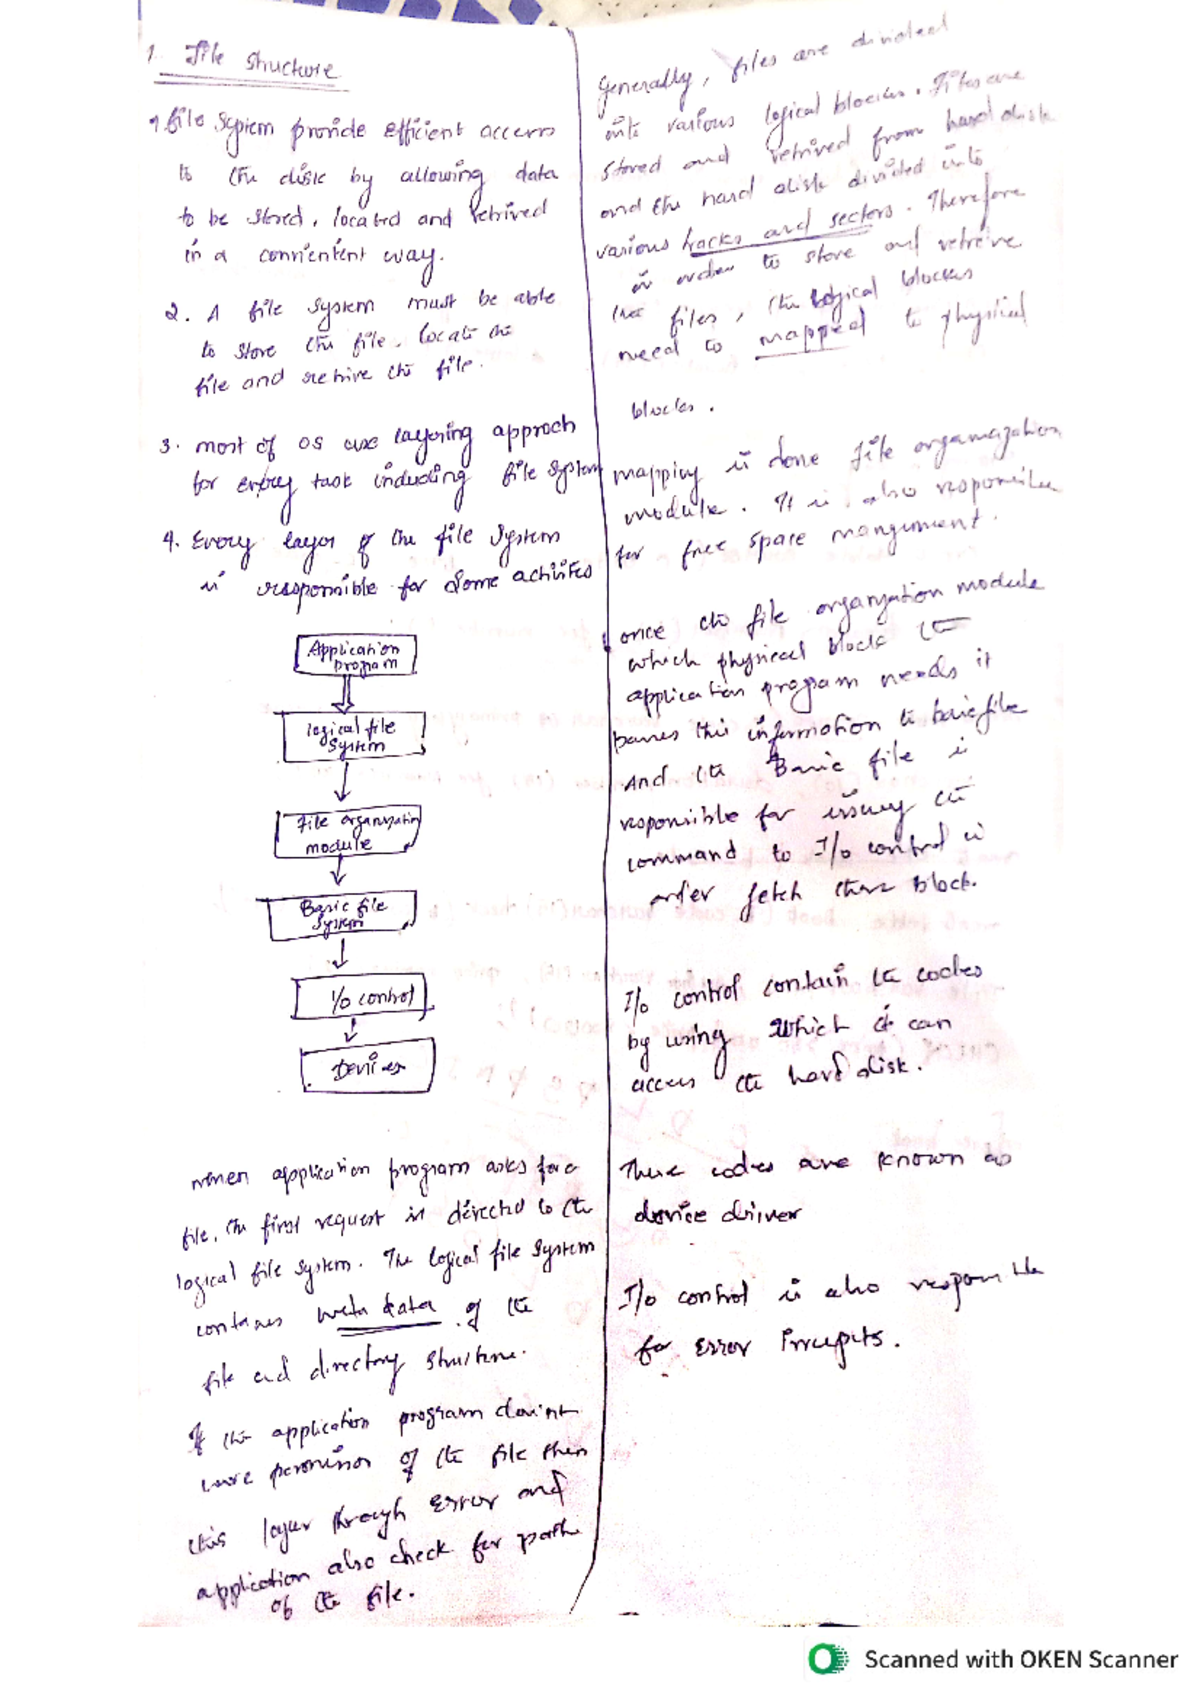 1. File structure
1. file System provide efficient access
to the disk by allowing data
to be stored, located and retrived
in a convientent way.
2. A file system must be able
to store the file, locate the
file and retrive the file.
3. most of OS use layering approch
for every task including file system
4. Every layer of the file system
is responsible for some activites
Application
program
logical file
System
File organization
module
Basic file
System
I/o control
Devices
when application program asks for a
file, the first request is directed to the
logical file system. The logical file system
containes meta data of the
file and directory structure.
If the application program doesnt
have permission of the file then
this layer through error and
application also check for path
of the file.
Generally, files are divided
into various logical blockes. Files are
stored and retrived from hard disk
and the hard disk divided into
various tracks and sectors. Therefore
in order to store and retreive
the files, the logical blockes
need to mapped to physical
blockes.
mapping is done file organization
module. It is also responsible
for free space mangement.
once the file organzation module
which physical block the
application program needs it
passes this information to basic file
And the Basic file is
responsible for issuing the
command to I/o control in
order fetch those block.
I/o control contain the codes
by using which it can
access the hard disk.
These codes are known as
device driver
I/o control is also responsible
for Error
Scanned with OKEN Scanner